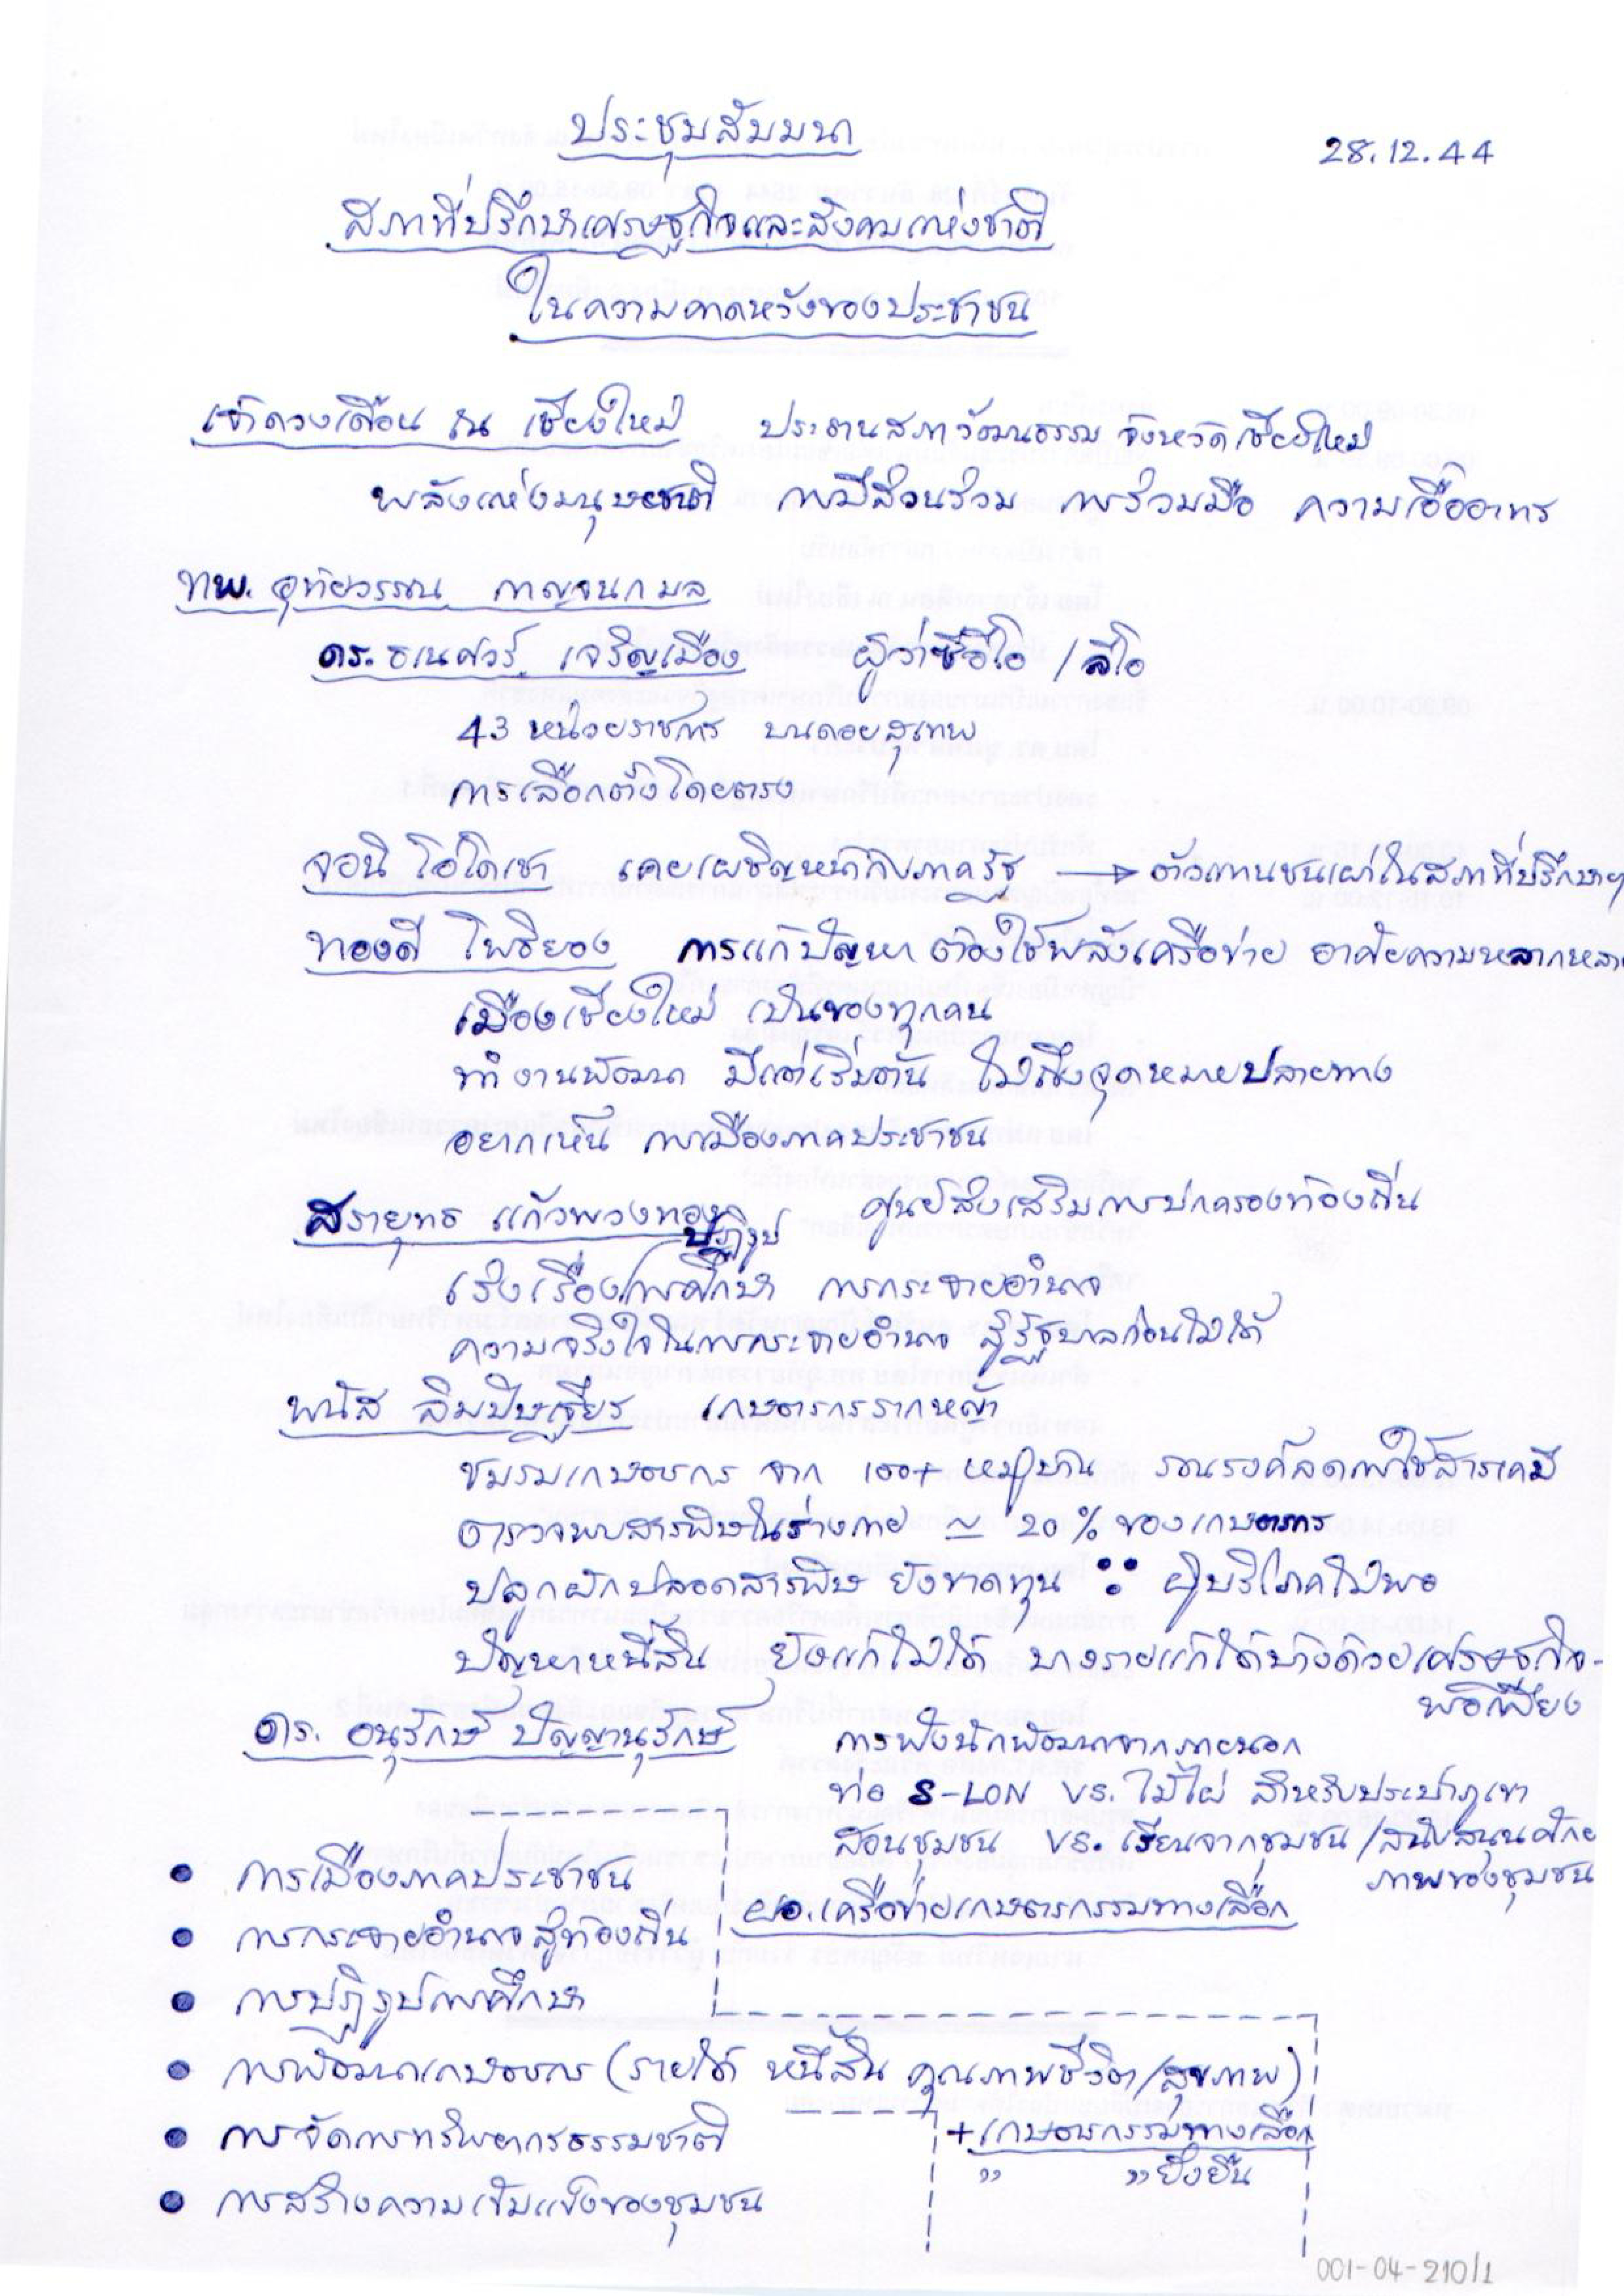 ประชุมสัมมนา
28.12.44
สภาที่ปรึกษาเศรษฐกิจและสังคมแห่งชาติ
ในความคาดหวังของประชาชน
เจ้าดวงเดือน ณ เชียงใหม่ ประธานสภาวัฒนธรรม จังหวัดเชียงใหม่
พลังแห่งมนุษยชาติ การมีส่วนร่วม การร่วมมือ ความเอื้ออาทร
ทพ. อุทัยวรรณ กาญจนกามล
ดร. ธเนศวร์ เจริญเมือง ผู้ว่าซีอีโอ / ลีโอ
43 หน่วยราชการ บนดอยสุเทพ
การเลือกตั้งโดยตรง
จอนิ โอ่โดเชา เคยเผชิญหน้ากับภาครัฐ → ตัวแทนชนเผ่าในสภาที่ปรึกษาฯ
ทองดี โพธิยอง การแก้ปัญหา ต้องใช้พลังเครือข่าย อาศัยความหลากหลาย
เมืองเชียงใหม่ เป็นของทุกคน
ทำงานพัฒนา มีแต่เริ่มต้น ไม่ถึงจุดหมายปลายทาง
อยากเห็น การเมืองภาคประชาชน
สรายุทธ แก้วพวงทอง ศูนย์ส่งเสริมการปกครองท้องถิ่น
ปฏิรูป
เร่งเรื่องการศึกษา การกระจายอำนาจ
ความจริงใจในการกระจายอำนาจ สู้รัฐบาลก่อนไม่ได้
พนัส ลิมปิษเฐียร เกษตรกรรากหญ้า
ชมรมเกษตรกร จาก 100+ หมู่บ้าน รณรงค์ลดการใช้สารเคมี
ตรวจพบสารพิษในร่างกาย ~ 20% ของเกษตรกร
ปลูกผักปลอดสารพิษ ยังขาดทุน ∵ ผู้บริโภคไม่พอ
ปัญหาหนี้สิน ยังแก้ไม่ได้ บางรายแก้ได้บ้างด้วยเศรษฐกิจ-
พอเพียง
ดร. อนุรักษ์ ปัญญานุรักษ์ การฟังนักพัฒนาจากภายนอก
ท่อ S-LON vs. ไม้ไผ่ สำหรับประปาภูเขา
สอนชุมชน vs. เรียนจากชุมชน / สนับสนุนศักย
ภาพของชุมชน
• การเมืองภาคประชาชน
ผอ. เครือข่ายเกษตรกรรมทางเลือก
• การกระจายอำนาจสู่ท้องถิ่น
• การปฏิรูปการศึกษา
• การพัฒนาเกษตรกร (รายได้ หนี้สิน คุณภาพชีวิต/สุขภาพ)
• การจัดการทรัพยากรธรรมชาติ + เกษตรกรรมทางเลือก
" " ยั่งยืน
• การสร้างความเข้มแข็งของชุมชน
001-04-210/1